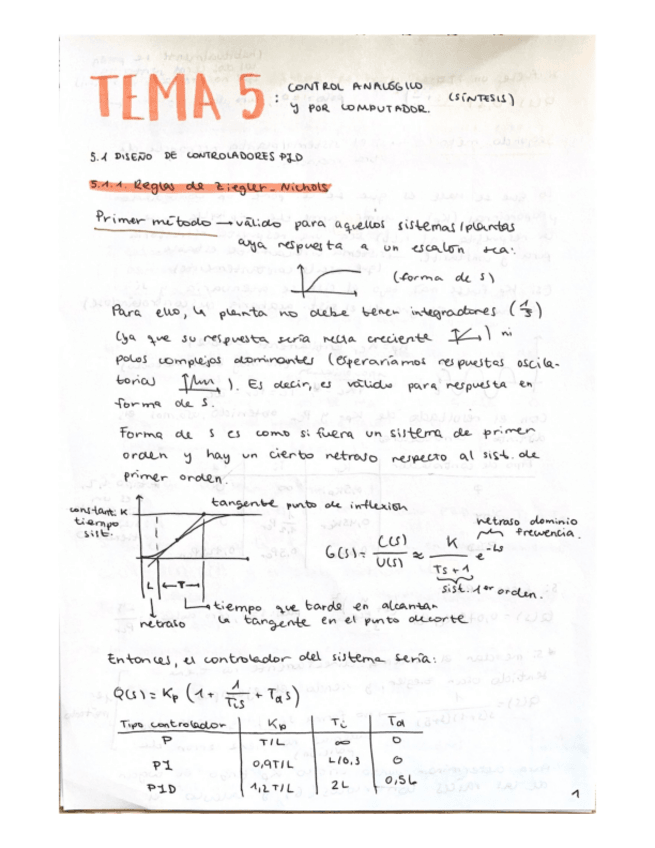 TEMA 5: CONTROL ANALÓGICO (SÍNTESIS)
Y POR COMPUTADOR.
5.1 DISEÑO DE CONTROLADORES PID
5.1.1. Reglas de Ziegler-Nichols
Primer método → válido para aquellos sistemas/plantas
cuya respuesta a un escalón sea:
(forma de S)
Para ello, la planta no debe tener integradores (1/s)
(ya que su respuesta sería recta creciente) ni
polos complejos dominantes (esperaríamos respuestas oscila-
torias). Es decir, es válido para respuesta en
forma de S.
Forma de S es como si fuera un sistema de primer
orden y hay un cierto retraso respecto al sist. de
primer orden.
tangente punto de inflexión
constant. K
tiempo
sist.
L ←T→
retraso
tiempo que tarda en alcanzar
la tangente en el punto de corte
retraso dominio
frecuencia.
G(s) = C(s)/U(s) ≈ K/(Ts+1) e^-Ls
sist. 1er orden.
Entonces, el controlador del sistema sería:
Q(s) = Kp (1 + 1/Tis + Tds)
Tipo controlador Kp Ti Td
P T/L ∞ 0
PI 0,9T/L L/0,3 0
PID 1,2T/L 2L 0,5L
1